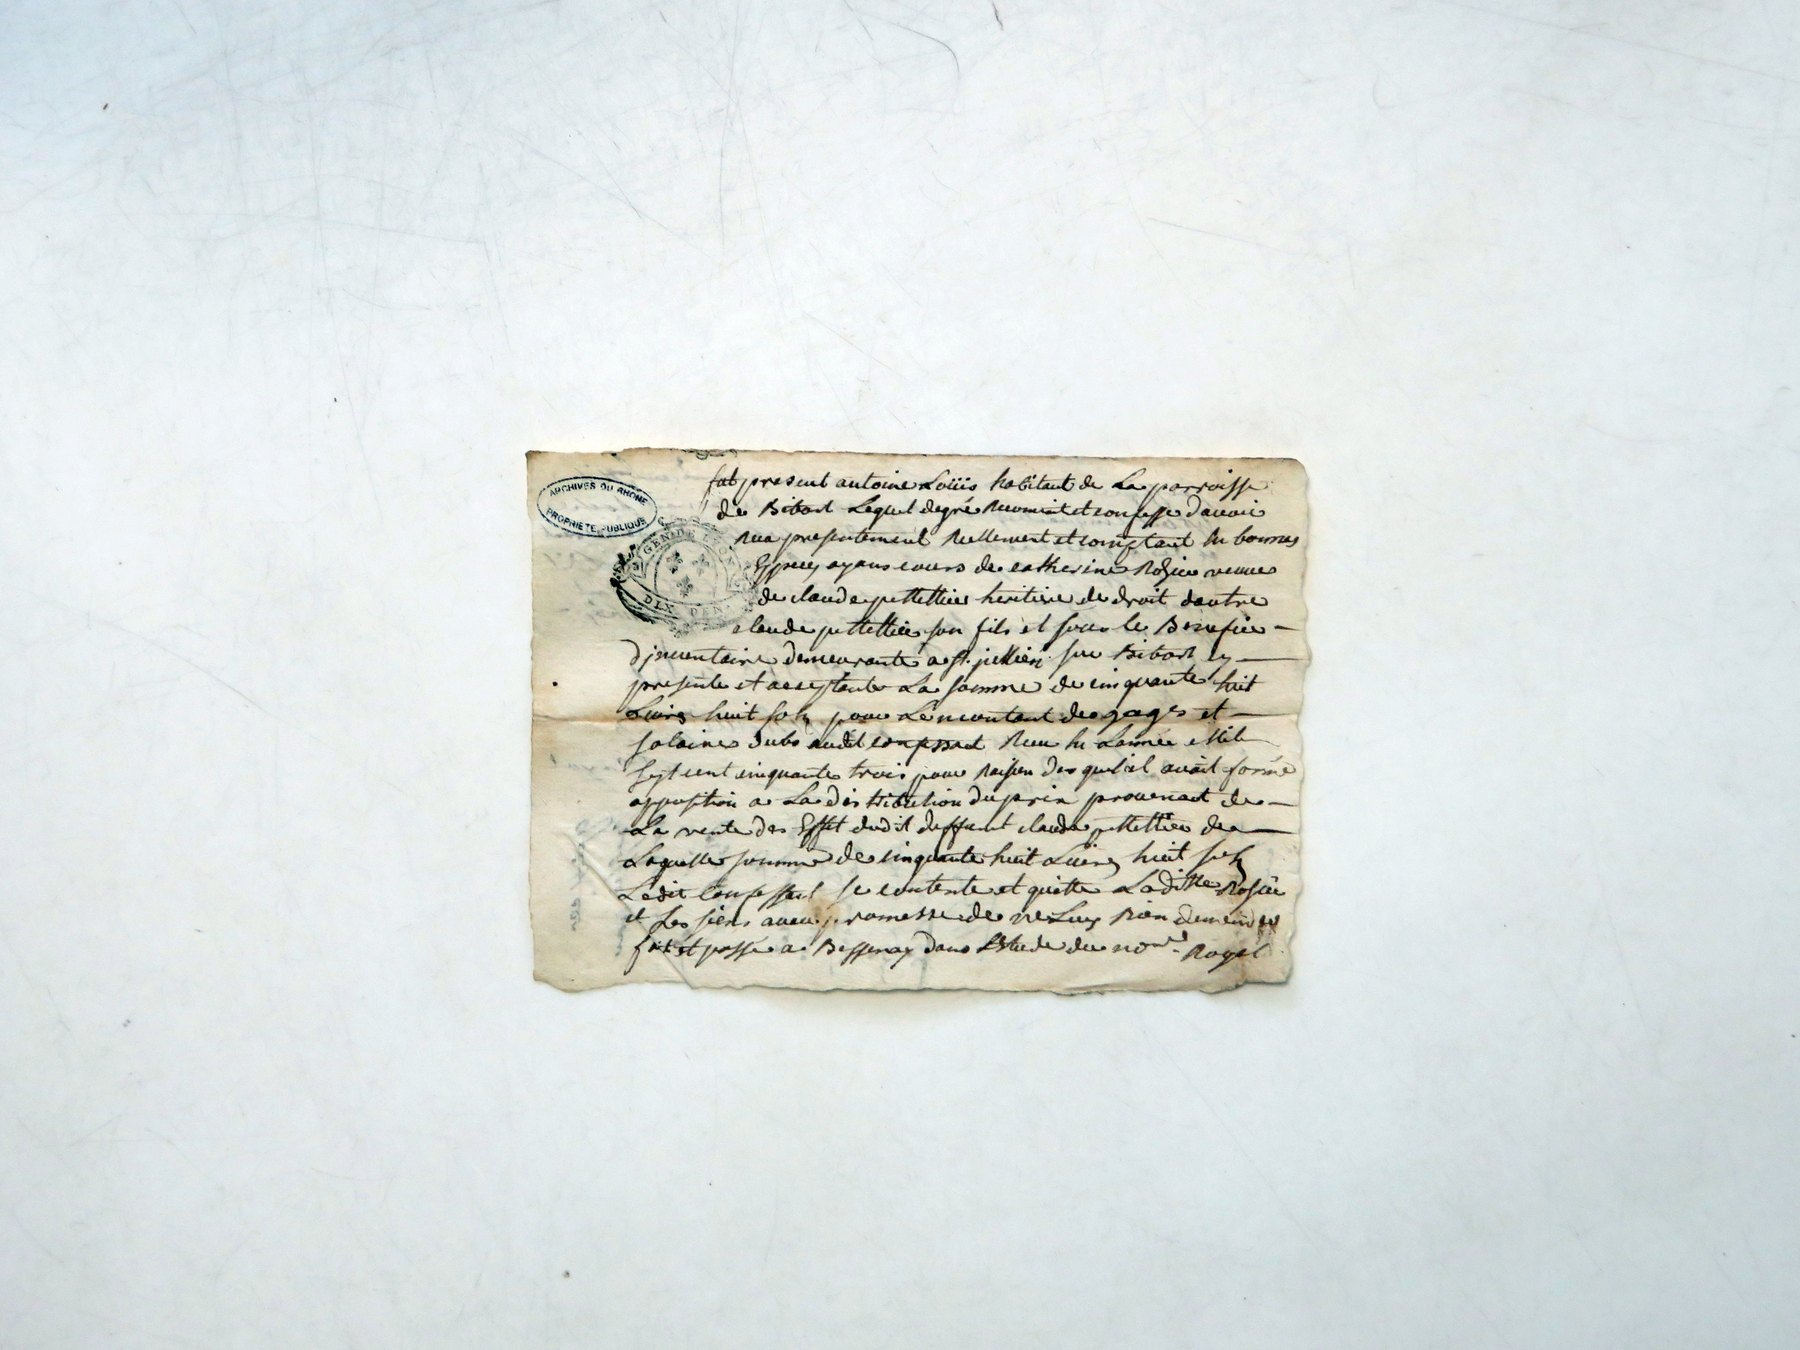 ARCHIVES DU RHONE
PROPRIETE PUBLIQUE
GEN. DE LYON
DIX DEN
fut present antoine Loüis habitant de La parroisse
de Bibost Lequel de gré Reconnoit et confesse d'avoir
Receu presentement Reellement et comptant En bonnes
Especes ayans cours de catherine Rozier veuve
de claude pettellier heritiere de droit dautre
claude pettellier son fils et sous le Benefice
d'jnventaire demeurante a St jullien sur Bibost cy
presente et acceptante La somme de cinquante huit
Livres huit sols pour Le montant des gages et
salaires dubs audit confessant Receu En Lannée Mil
sept cent cinquante trois pour Raison des quels il avoit formé
opposition a La distribution du prix provenant de
La vente des Effet dudit deffunt claude pettellier de
Laquelle somme de cinquante huit Livres huit sols
Ledit confessant se contente et quitte Laditte Rosier
et Les siens avec promesse de ne Luy Rien demander
fait et passé a Bessenay dans Letude du nore Royal